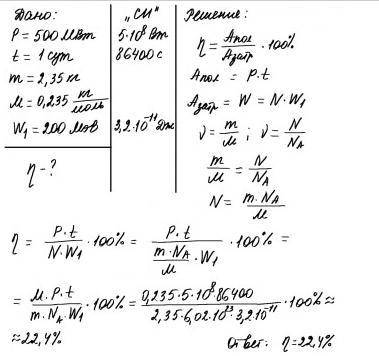 Дано:
P = 500 МВт
t = 1 сут
m = 2,35 кг
M = 0,235 кг/моль
W₁ = 200 МэВ
η - ?
„СИ“
5·10⁸ Вт
86400 с
3,2·10⁻¹¹ Дж
Решение:
η = Aпол/Aзатр · 100%
Aпол = P·t
Aзатр = W = N·W₁
ν = m/M ; ν = N/NA
m/M = N/NA
N = m·NA/M
η = P·t/(N·W₁) · 100% = P·t/(m·NA/M · W₁) · 100% =
= M·P·t/(m·NA·W₁) · 100% = 0,235·5·10⁸·86400/(2,35·6,02·10²³·3,2·10⁻¹¹) · 100% ≈
≈ 22,4%
Ответ: η = 22,4%